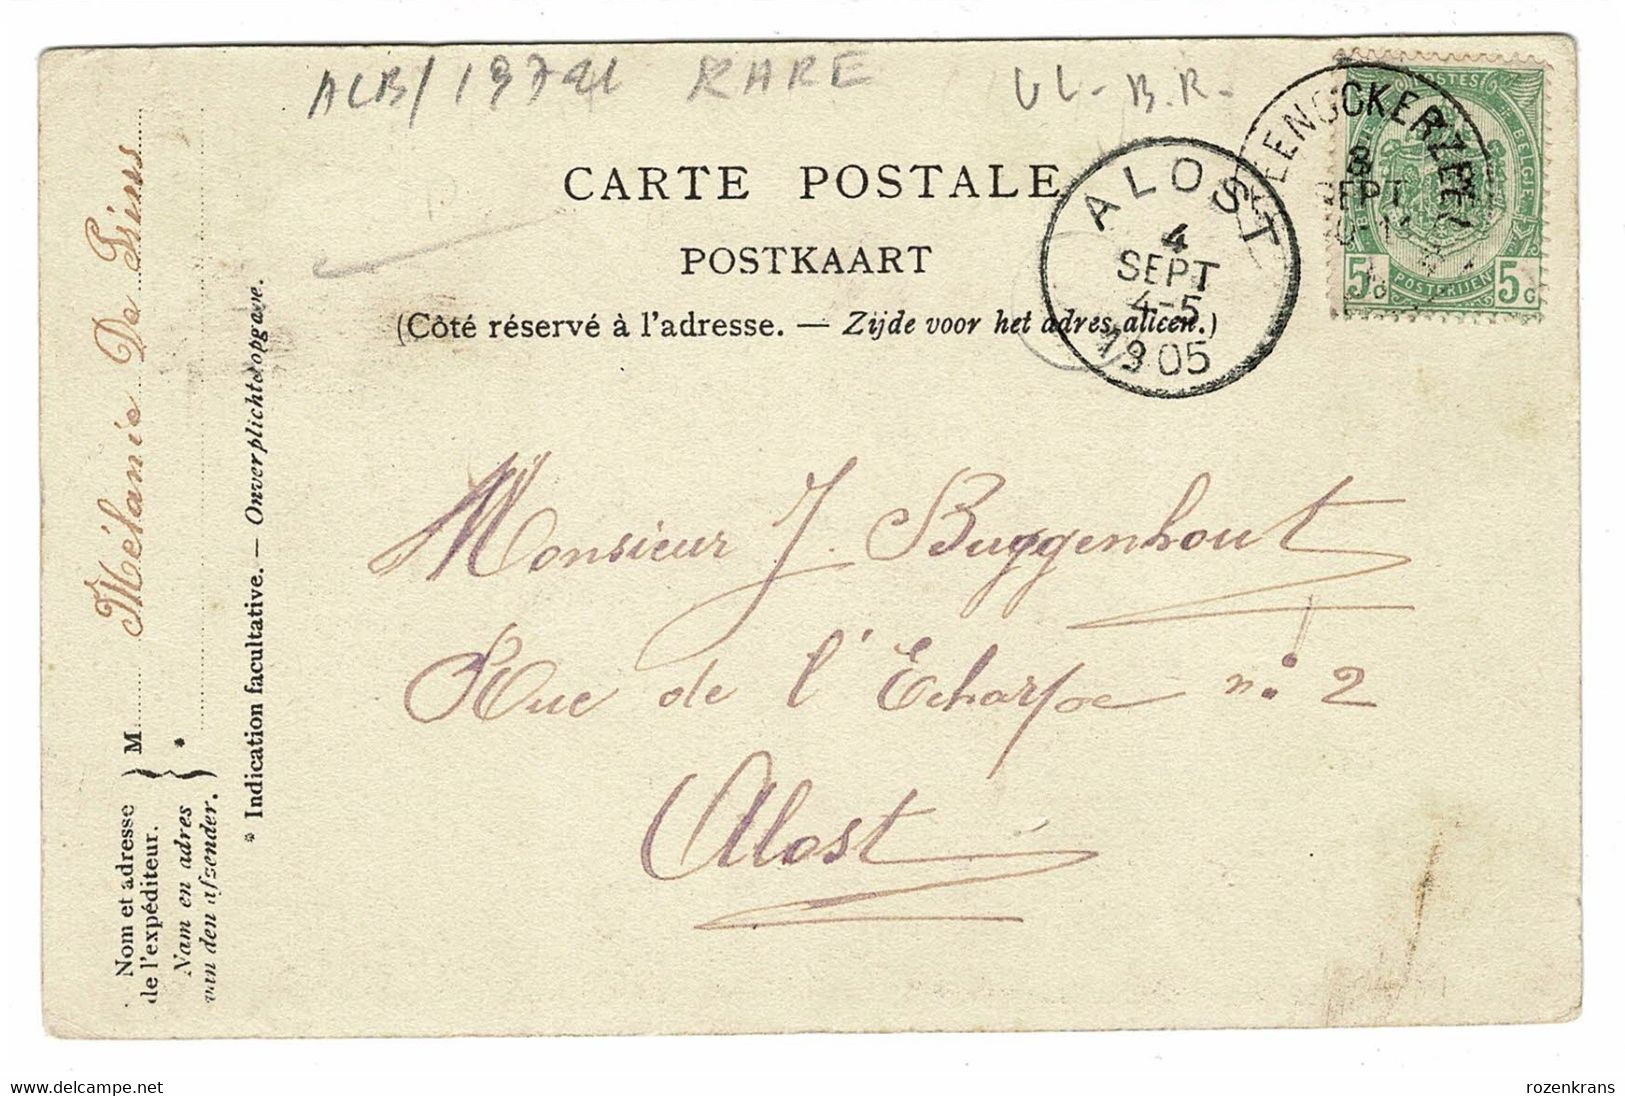 ALB/
RARE
VL-B.R.
CARTE POSTALE
POSTKAART
(Côté réservé à l'adresse. — Zijde voor het adres alleen.)
ALOST
4
SEPT
4-5
1905
EENOCKERZEEL
SEPT
POSTES
BELGIQUE
BELGIE
POSTERIJEN
5c 5c
Monsieur J. Buggenhout
Rue de l'Echarpe n° 2
Alost
Nom et adresse
de l'expéditeur.
Nam en adres
van den afzender.
M
Mélanie De
*
* Indication facultative. — Onverplichte opgave.
delcampe.net
rozenkrans